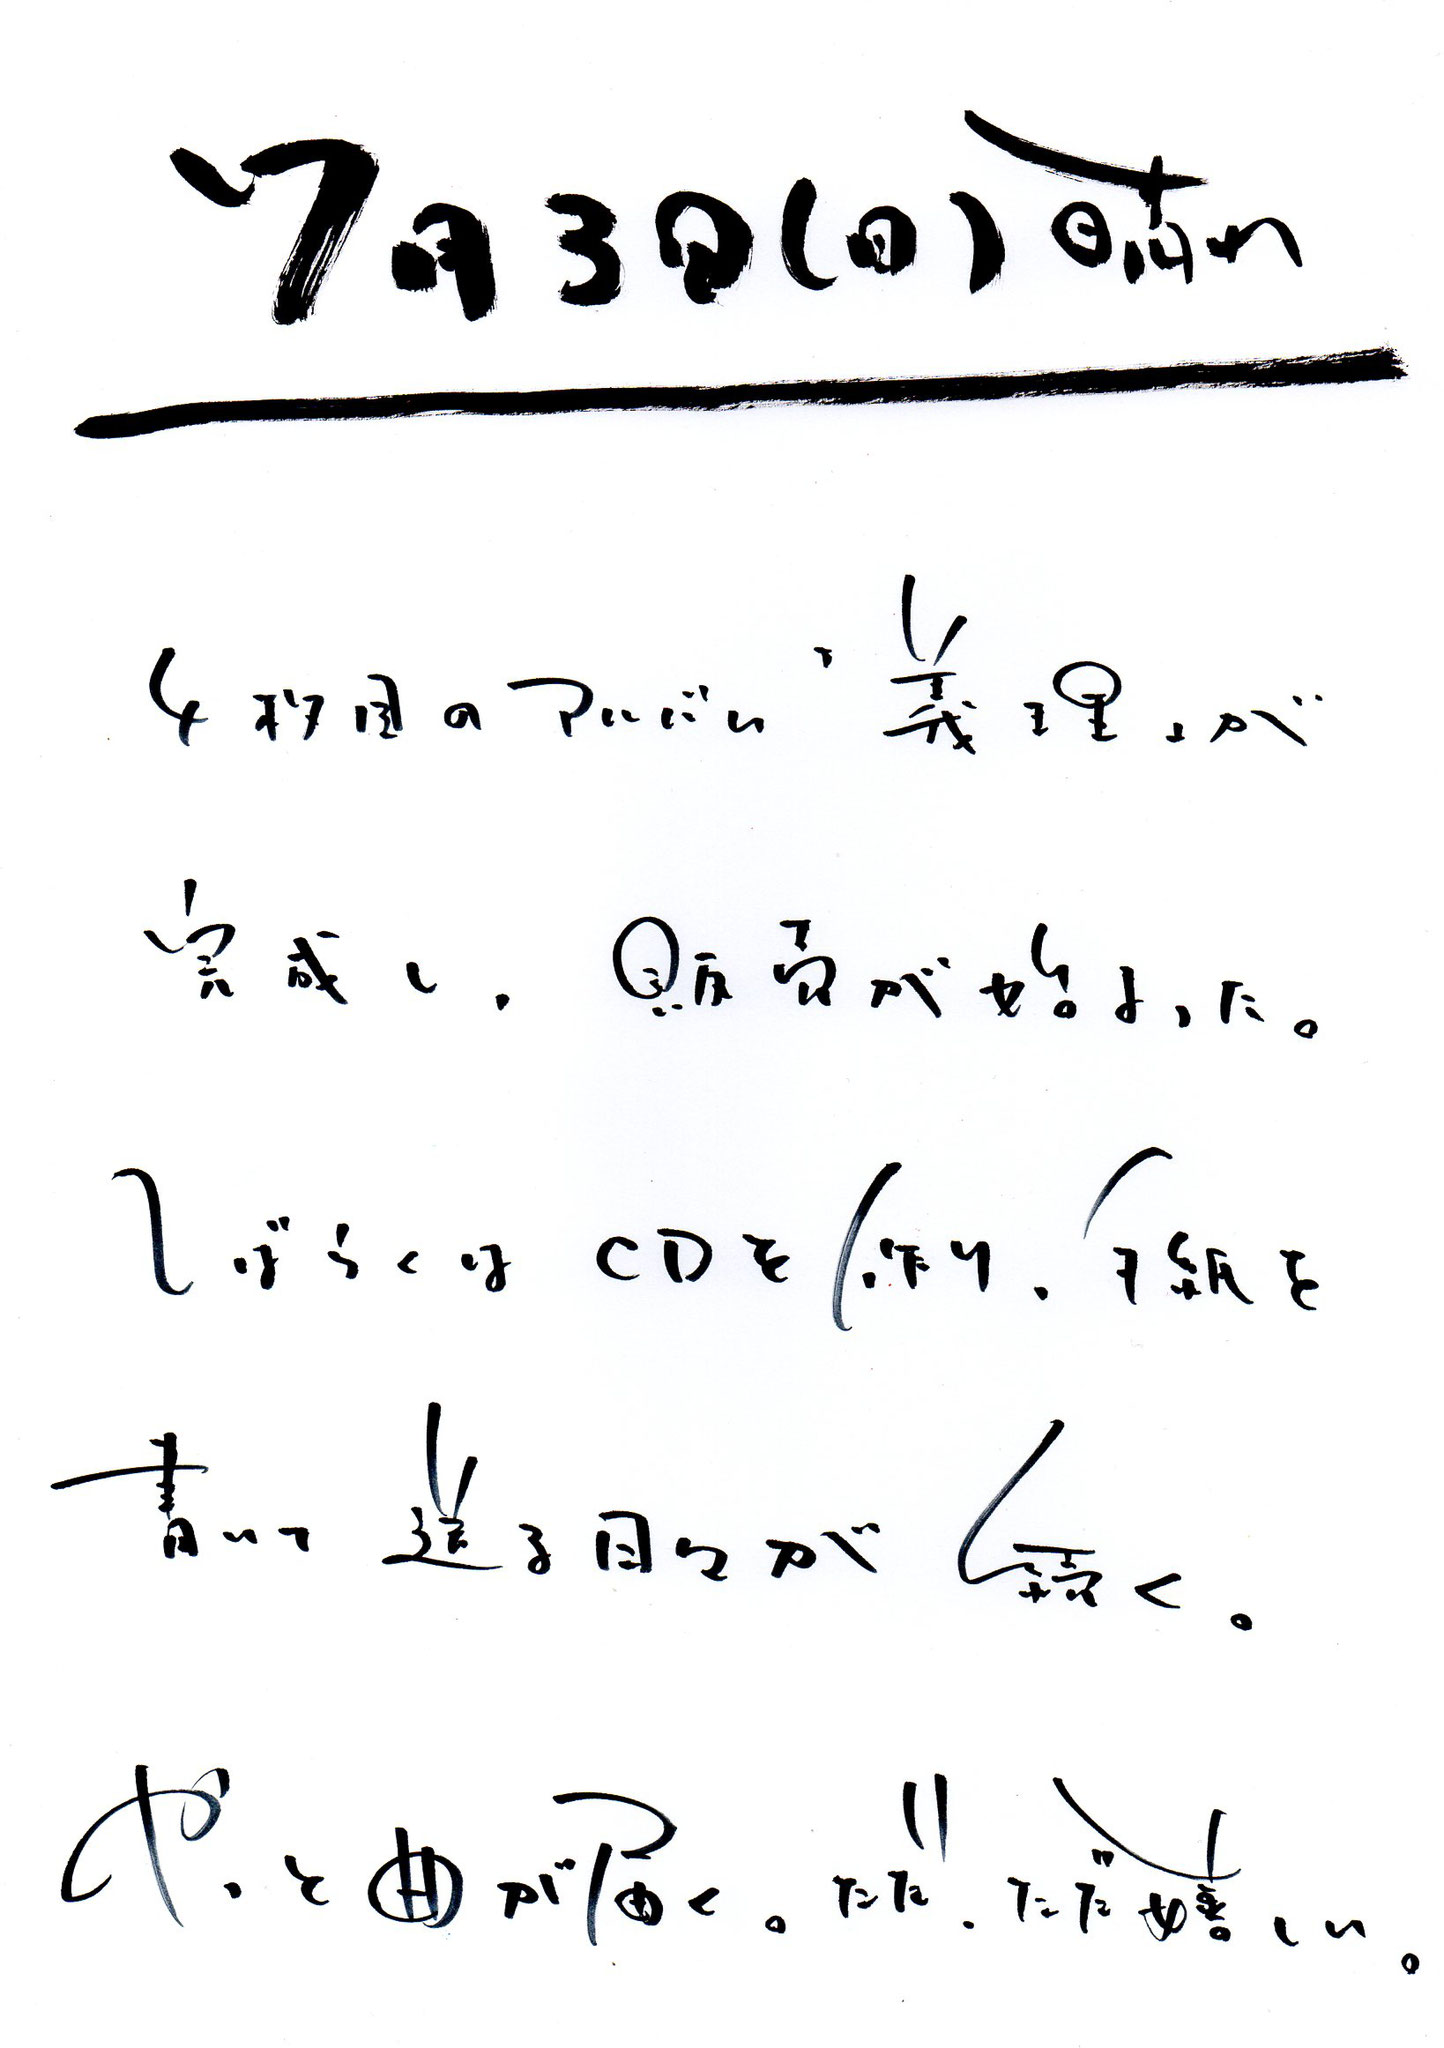 7月3日(日)晴れ
4枚目のアルバム「義理」が
完成し、販売が始まった。
しばらくはCDを作り、手紙を
書いて送る日々が続く。
やっと曲が届く。ただ、ただ嬉しい。